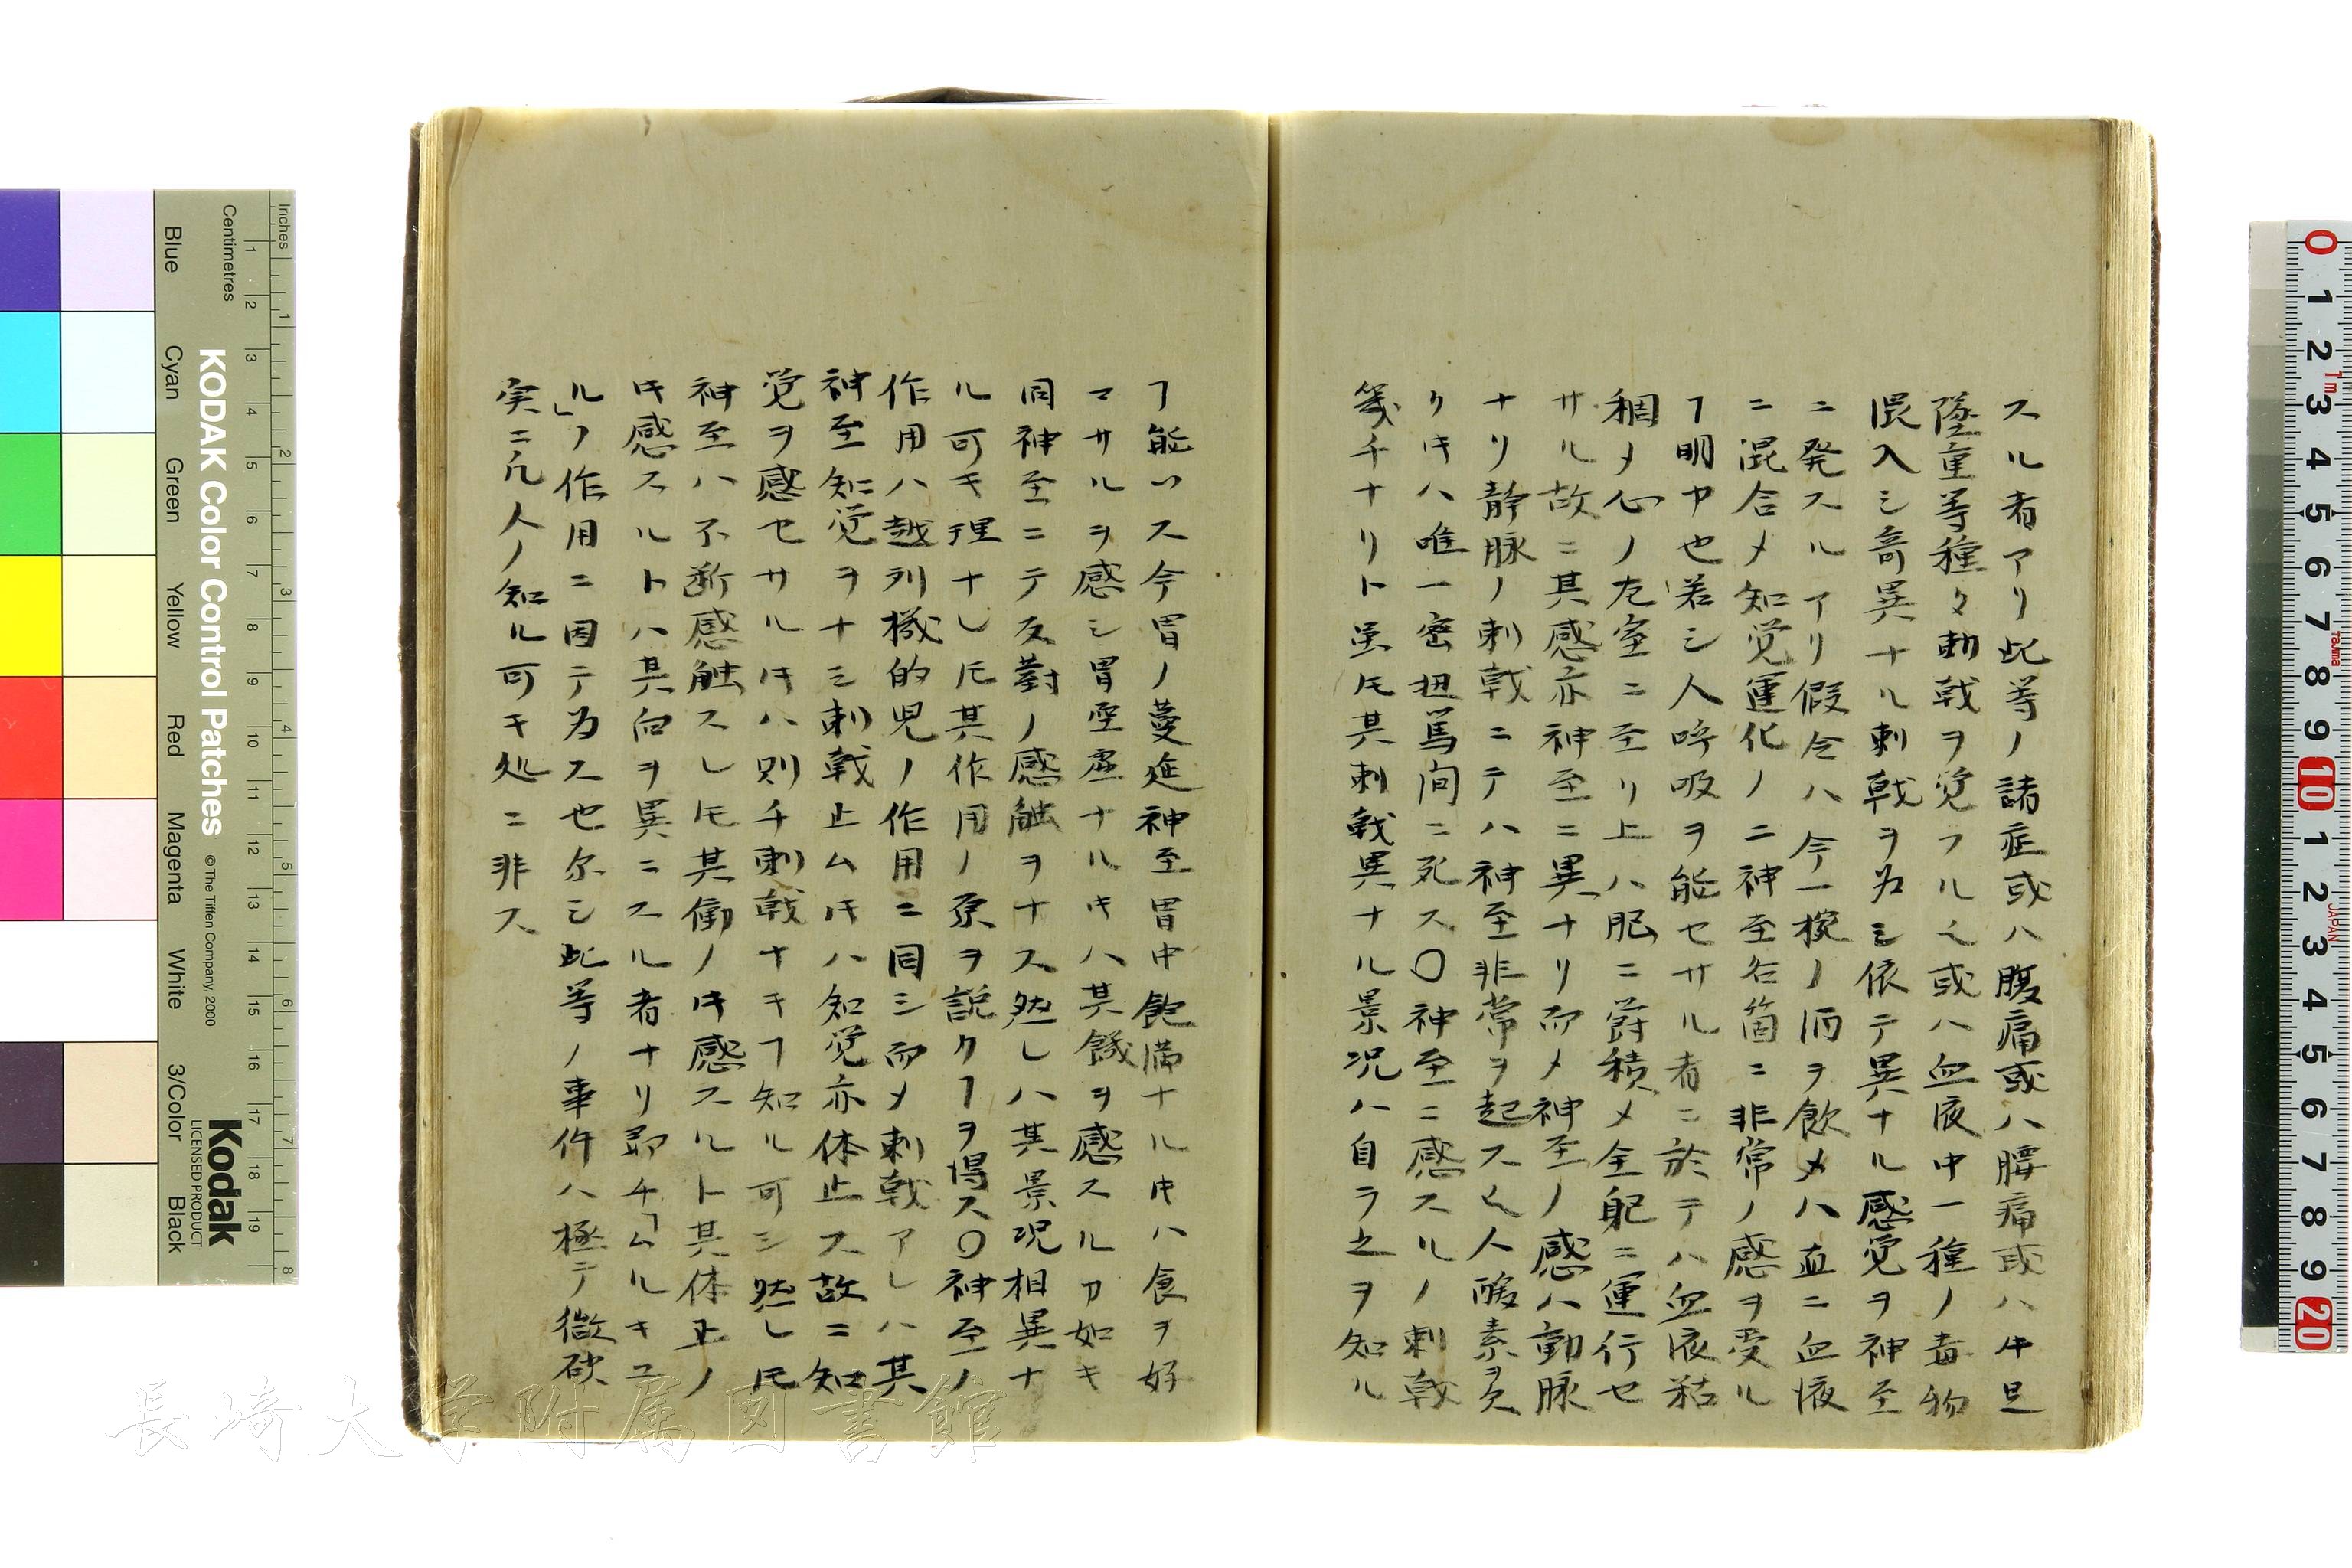 スル者アリ此等ノ諸症或ハ腹痛或ハ腰痛或ハ牛旦
墜重等種々刺戟ヲ覚フル也或ハ血液中一種ノ毒物
混入シ奇異ナル刺戟ヲ為シ依テ異ナル感覚ヲ神至
ニ発スルアリ假令ハ今一椀ノ酒ヲ飲メハ直ニ血液
ニ混合メ知覚運化ノ二神至各箇ニ非常ノ感ヲ受ル
ヿ明カ也若シ人呼吸ヲ能セサル者ニ於テハ血液粘
稠メ心ノ左室ニ至リ上ハ脳ニ蓄積メ全躯ニ運行セ
サル故ニ其感亦神至ニ異ナリ而メ神至ノ感ハ動脉
ナリ静脉ノ刺戟ニテハ神至非常ヲ起ス也人酸素ヲ欠
クキハ唯一密扭篤間ニ死ス〇神至ニ感スルノ刺戟
幾千ナリト虽𪜈其刺戟異ナル景况ハ自ラ之ヲ知ル
ヿ能ハス今胃ノ蔓延神至胃中飽満ナルキハ食ヲ好
マサルヲ感シ胃空虚ナルキハ其餓ヲ感スルカ如キ
同神至ニテ反對ノ感触ヲナス然レハ其景况相異ナ
ル可キ理ナレ𪜈其作用ノ原ヲ説クヿヲ得ス〇神至ノ
作用ハ越列機的児ノ作用ニ同シ而メ刺戟アレハ其
神至知覚ヲナシ刺戟止ムキハ知覚亦休止ス故ニ知
覚ヲ感セサルキハ則チ刺戟ナキヿ知ル可シ然レ𪜈
神至ハ不断感触スレ𪜈其働ノキ感スルト其休止ノ
キ感スルトハ其向ヲ異ニスル者ナリ即チ「ムルキユ
ル」ノ作用ニ因テ為ス也尓シ此等ノ事件ハ極テ微砕
実ニ凡人ノ知ル可キ処ニ非ス
Inches
Centimetres
KODAK Color Control Patches
© The Tiffen Company, 2000
Kodak
LICENSED PRODUCT
Blue
Cyan
Green
Yellow
Red
Magenta
White
3/Color
Black
JAPAN
長崎大学附属図書館